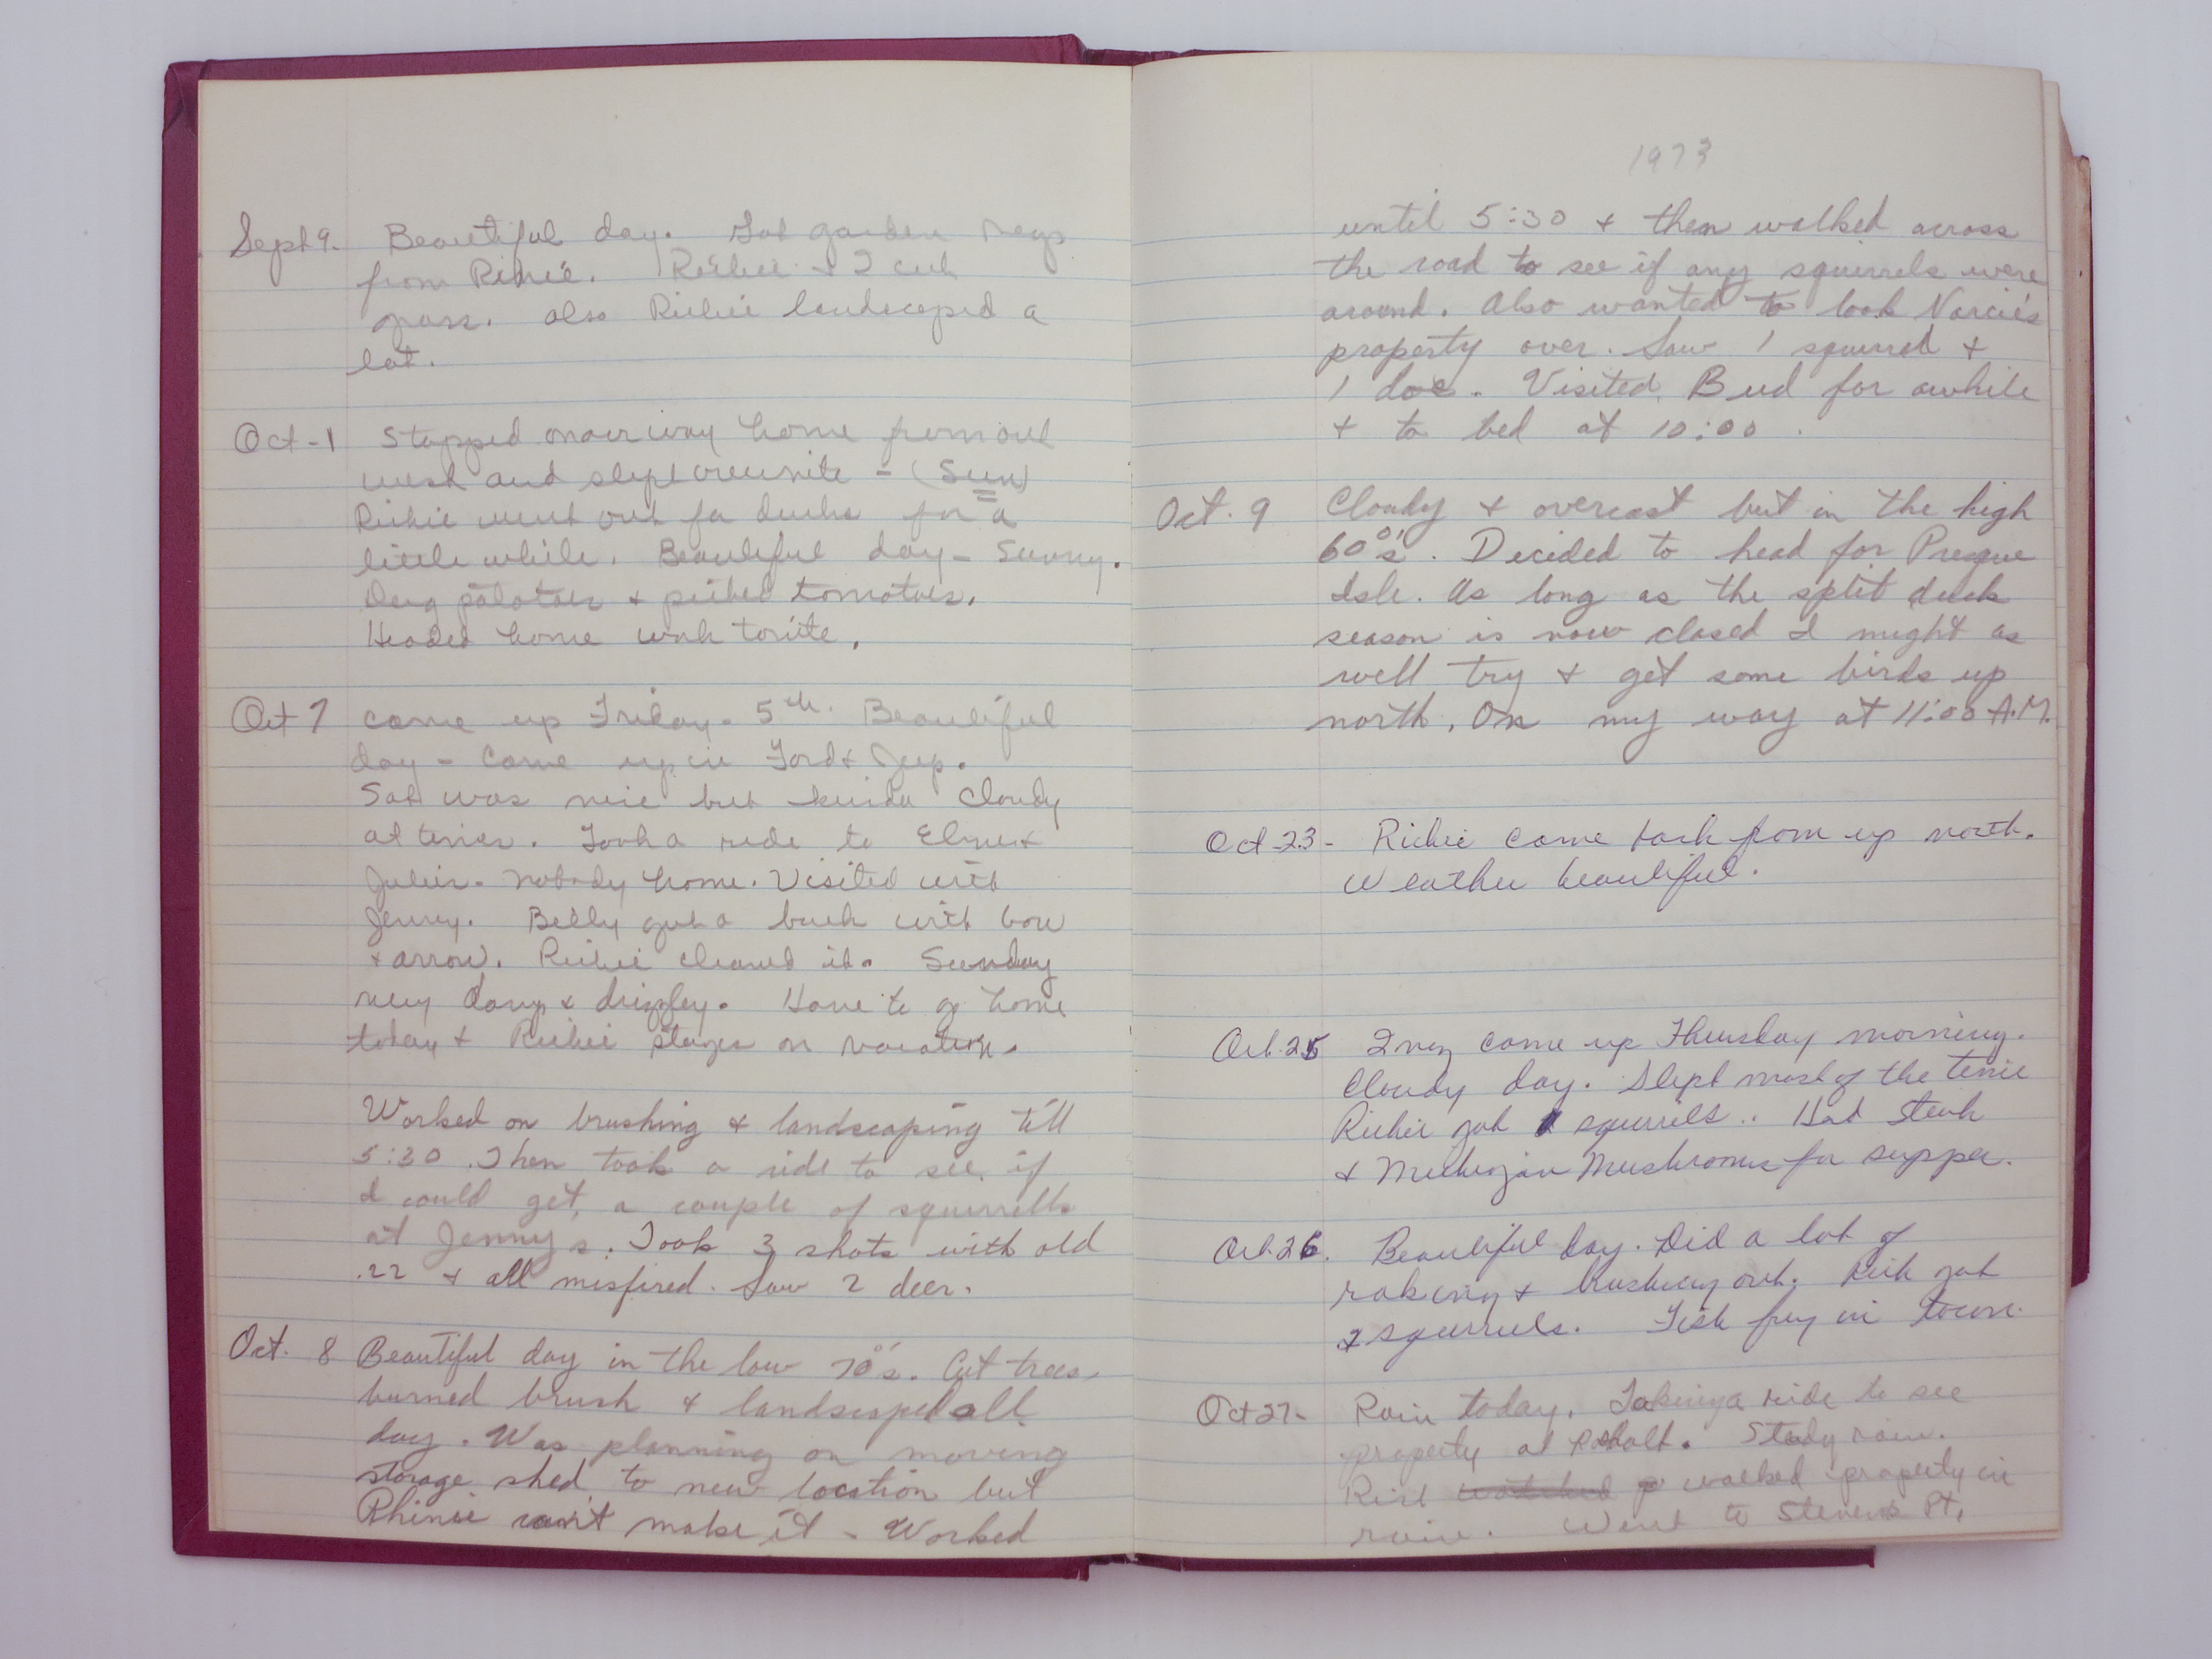 Sept 9. Beautiful day. Got garden
from Richie. Richie + I cut
grass. also Richie landscaped a
lot.
Oct-1 Stopped on our way home from out
west and slept overnite - (Sun)
Richie went out for ducks for a
little while. Beautiful day - Sunny.
Dug potatoes + picked tomatoes.
Headed home wah tonite.
Oct 7 came up Friday - 5th. Beautiful
day - Came up in Ford + Jeep.
Sat was nice but kinda cloudy
at times. Took a ride to Elmer +
Julies - nobody home. Visited with
Jenny. Billy got a buck with bow
+ arrow. Richie cleaned it. Sunday
very damp + drizzley. Have to go home
today + Richie stays on vacation.
Worked on brushing + landscaping till
5:30. Then took a ride to see if
I could get a couple of squirrells
at Jennys. Took 3 shots with old
.22 + all misfired. Saw 2 deer.
Oct. 8 Beautiful day in the low 70°'s. Cut trees,
burned brush + landscaped all
day. Was planning on moving
storage shed to new location but
Rhinie can't make it - Worked
1973
until 5:30 + then walked across
the road to see if any squirrels were
around. Also wanted to look Narcie's
property over. Saw 1 squirrel +
1 doe. Visited Bud for awhile
+ to bed at 10:00.
Oct. 9 Cloudy + overcast but in the high
60°'s. Decided to head for Presque
Isle. As long as the split duck
season is now closed I might as
well try + get some birds up
north. On my way at 11:00 A.M.
Oct 23- Richie came back from up north.
Weather beautiful.
Oct. 25 Irvy came up Thursday morning.
Cloudy day. Slept most of the time
Richie got squirrels.. Had steak
+ Michigan Mushrooms for supper.
Oct. 26. Beautiful day. Did a lot of
raking + brushing out. Rich got
2 squirrels. Fish fry in town.
Oct 27- Rain today. Taking a ride to see
property at Rosholt. Steady rain.
Rich watched walked property in
rain. Went to Stevens Pt.